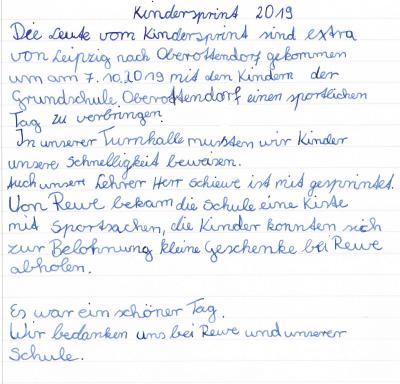 Kindersprint 2019
Die Leute vom Kindersprint sind extra
von Leipzig nach Oberottendorf gekommen
um am 7.10.2019 mit den Kindern der
Grundschule Oberottendorf einen sportlichen
Tag zu verbringen.
In unserer Turnhalle mussten wir Kinder
unsere Schnelligkeit beweisen.
Auch unsere Lehrer Herr Schiewe ist mit gesprintet.
Von Rewe bekam die Schule eine Kiste
mit Sportsachen, die Kinder konnten sich
zur Belohnung kleine Geschenke bei Rewe
abholen.
Es war ein schöner Tag.
Wir bedanken uns bei Rewe und unserer
Schule.